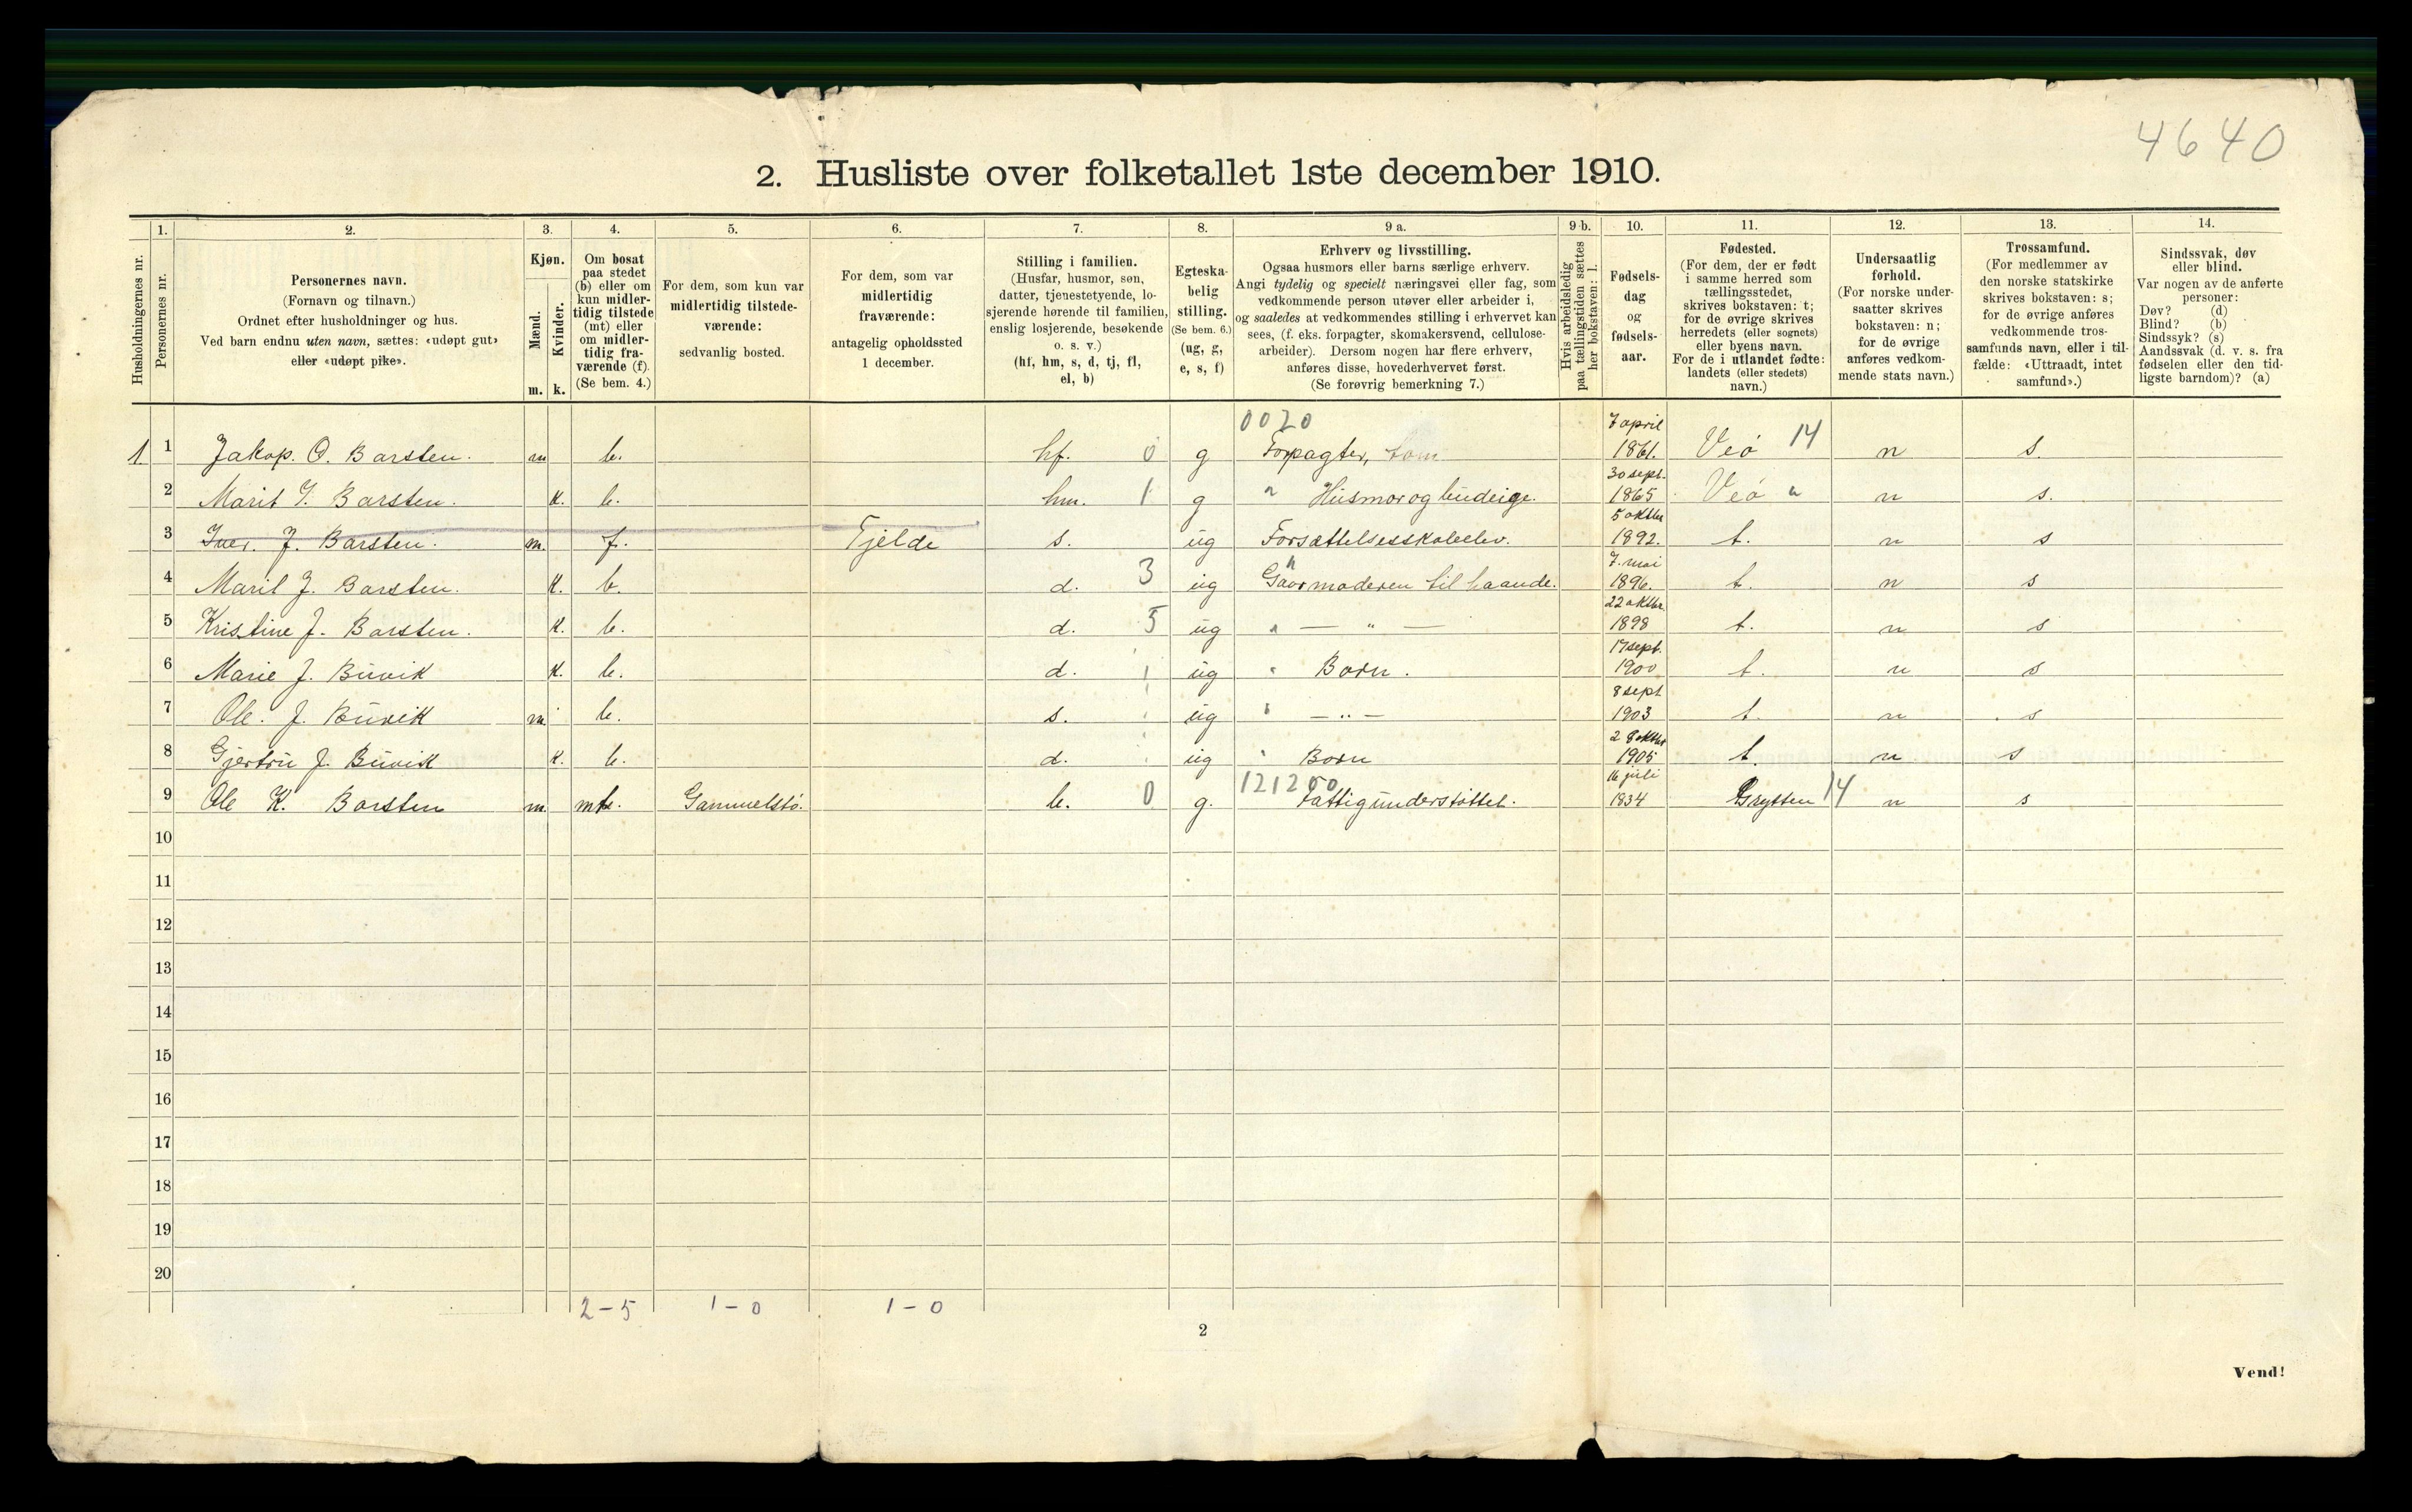 4640
2. Husliste over folketallet 1ste december 1910.
Husholdningernes nr.
1.
Personernes nr.
2.
Personernes navn.
(Fornavn og tilnavn.)
Ordnet efter husholdninger og hus.
Ved barn endnu uten navn, sættes: «udøpt gut»
eller «udøpt pike».
3.
Kjøn.
Mænd.
Kvinder.
m. k.
4.
Om bosat
paa stedet
(b) eller om
kun midler-
tidig tilstede
(mt) eller
om midler-
tidig fra-
værende (f).
(Se bem. 4.)
5.
For dem, som kun var
midlertidig tilstede-
værende:
sedvanlig bosted.
6.
For dem, som var
midlertidig
fraværende:
antagelig opholdssted
1 december.
7.
Stilling i familien.
(Husfar, husmor, søn,
datter, tjenestetyende, lo-
sjerende hørende til familien,
enslig losjerende, besøkende
o. s. v.)
(hf, hm, s, d, tj, fl,
el, b)
8.
Egteska-
belig
stilling.
(Se bem. 6.)
(ug, g,
e, s, f)
9 a.
Erhverv og livsstilling.
Ogsaa husmors eller barns særlige erhverv.
Angi tydelig og specielt næringsvei eller fag, som
vedkommende person utøver eller arbeider i,
og saaledes at vedkommendes stilling i erhvervet kan
sees, (f. eks. forpagter, skomakersvend, cellulose-
arbeider). Dersom nogen har flere erhverv,
anføres disse, hovederhvervet først.
(Se forøvrig bemerkning 7.)
9 b.
Hvis arbeidsledig
paa tællingstiden sættes
her bokstaven: l.
10.
Fødsels-
dag
og
fødsels-
aar.
11.
Fødested.
(For dem, der er født
i samme herred som
tællingsstedet,
skrives bokstaven: t;
for de øvrige skrives
herredets (eller sognets)
eller byens navn.
For de i utlandet fødte:
landets (eller stedets)
navn.)
12.
Undersaatlig
forhold.
(For norske under-
saatter skrives
bokstaven: n;
for de øvrige
anføres vedkom-
mende stats navn.)
13.
Trossamfund.
(For medlemmer av
den norske statskirke
skrives bokstaven: s;
for de øvrige anføres
vedkommende tros-
samfunds navn, eller i til-
fælde: «Uttraadt, intet
samfund».)
14.
Sindssvak, døv
eller blind.
Var nogen av de anførte
personer:
Døv? (d)
Blind? (b)
Sindssyk? (s)
Aandssvak (d. v. s. fra
fødselen eller den tid-
ligste barndom)? (a)
0020 7 april
1 1 Jakop. O. Barsten. m b. hf. 0 g Forpagter, 1861. Veö 14 n s.
30 sept.
2 Marit I. Barsten. k. b. hm. 1 g " Husmor og budeige. 1865 Veö " n s.
5 oktbr
3 Iver. J. Barsten. m. f. Tjelde s. ug Forsættelsesskoleelev. 1892. t. n s
7. mai
4 Marit J. Barsten. k. b. d. 3 ug Gaar moderen til haande. 1896. t. n s
22 oktbr.
5 Kristine J. Barsten. k. b. d. 5 ug " — " — 1898 t. n s
17 sept.
6 Marie J. Buvik k. b. d. 1 ug " Barn. 1900 t. n s
8 sept
7 Ole. J. Buvik m. b. s. ug " — " — 1903 t. n s
28 oktbr
8 Gjertru J. Buvik k. b. d. ug " Barn 1905 t. n s
121200 16 juli
9 Ole K. Barsten m. mt. Gammelstö. b. 0 g. Fattigunderstöttet. 1834 Grytten 14 n s
10
11
12
13
14
15
16
17
18
19
20
2-5 1-0 1-0
2
Vend!